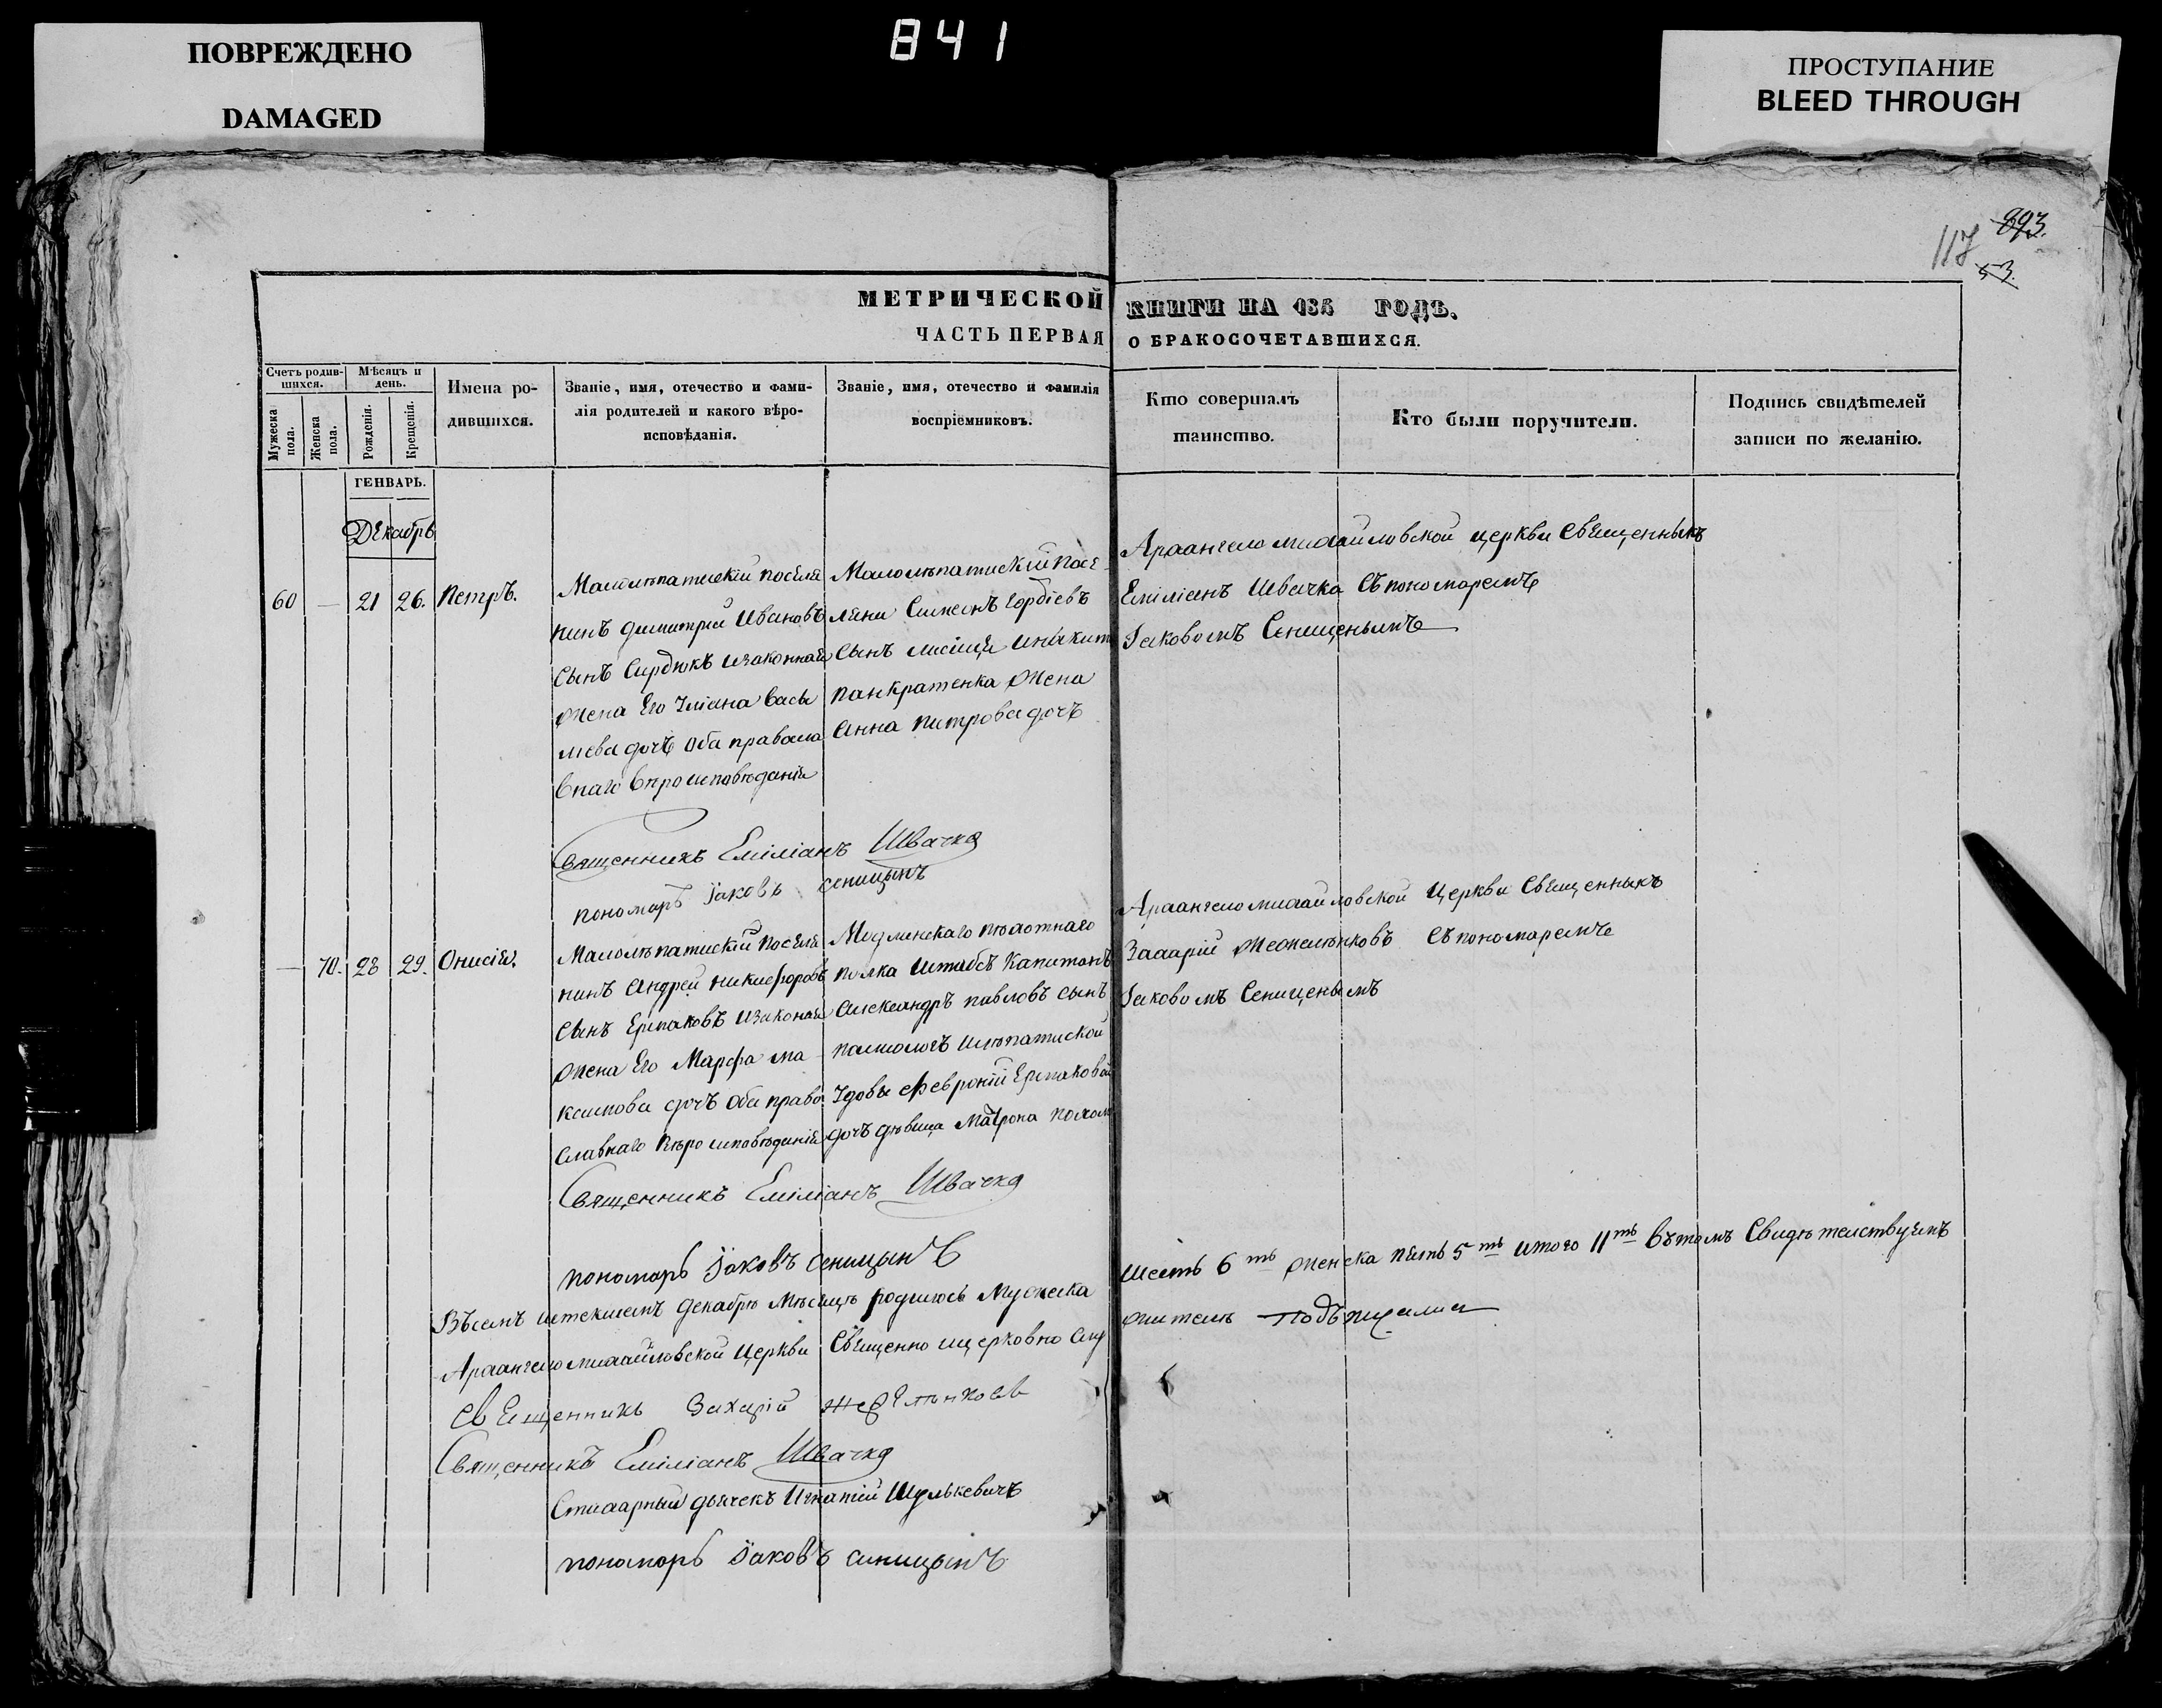 ПОВРЕЖДЕНО
DAMAGED
841
ПРОСТУПАНИЕ
BLEED THROUGH
893.
117
53.
МЕТРИЧЕСКОЙ КНИГИ НА 184 ГОДЪ.
ЧАСТЬ ПЕРВАЯ О БРАКОСОЧЕТАВШИХСЯ.
Счетъ родив-
шихся.
Мужеска
пола.
Женска
пола.
Мѣсяцъ и
день.
Рожденія.
Крещенія.
Имена ро-
дившихся.
Званіе, имя, отечество и фами-
лія родителей и какого вѣро-
исповѣданія.
Званіе, имя, отечество и фамилія
воспріемниковъ.
Кто совершалъ
таинство.
Кто были поручители.
Подпись свидѣтелей
записи по желанію.
ГЕНВАРЬ.
Декабрь
60 — 21 26. Петръ.
посѣля
нинъ Димитрій Ивановъ
сынъ Сирдюкъ изаконная
жена Его Уліана Васы
лѣва дочъ оба правосла
внаго вѣроисповѣданія
посе-
ляни Симеонъ Гордіевъ
сынъ
Панкратенка жена
Анна Петрова дочъ
Архангеломихайловской церкви Свещенныкъ
Емиліанъ Швачка съ пономаремъ
Іаковомъ Сеницынымъ
Священникъ Емиліанъ Швачка
пономарь Іаковъ Сеницынъ
— 70. 28 29. Онисія.
посѣля
нинъ Андрей Никифоровъ
сынъ Ермаковъ изаконая
жена Его Марфа Ма-
ксимова дочъ оба право
славнаго вѣроисповѣданія
Модлинскаго пѣхотнаго
полка Штабсъ Капитанъ
Александръ Павловъ сынъ
Удовы Февроніи Ермаковой
дочъ дѣвица Матрона
Архангеломихайловской Церкви Свещенныкъ
Захарій Жежеленковъ съ пономаремъ
Іаковомъ Сеницынымъ
Священникъ Емиліанъ Швачка
пономарь Іаковъ Сеницынъ
Всемъ истекшемъ Декабрѣ Мѣсяцѣ родилось Мужеска
шесть 6ть женска пять 5ть итого 11ть вътомъ Свидѣтелствуемъ
Архангеломихайловской Церкви Свещенно ицерковно слу
жители подъписалися
Свещенникъ Захарій Жежеленковъ
Священникъ Емиліанъ Швачка
Стихарный дьячекъ Игнатій Шулькевичъ
пономарь Іаковъ Синицынъ